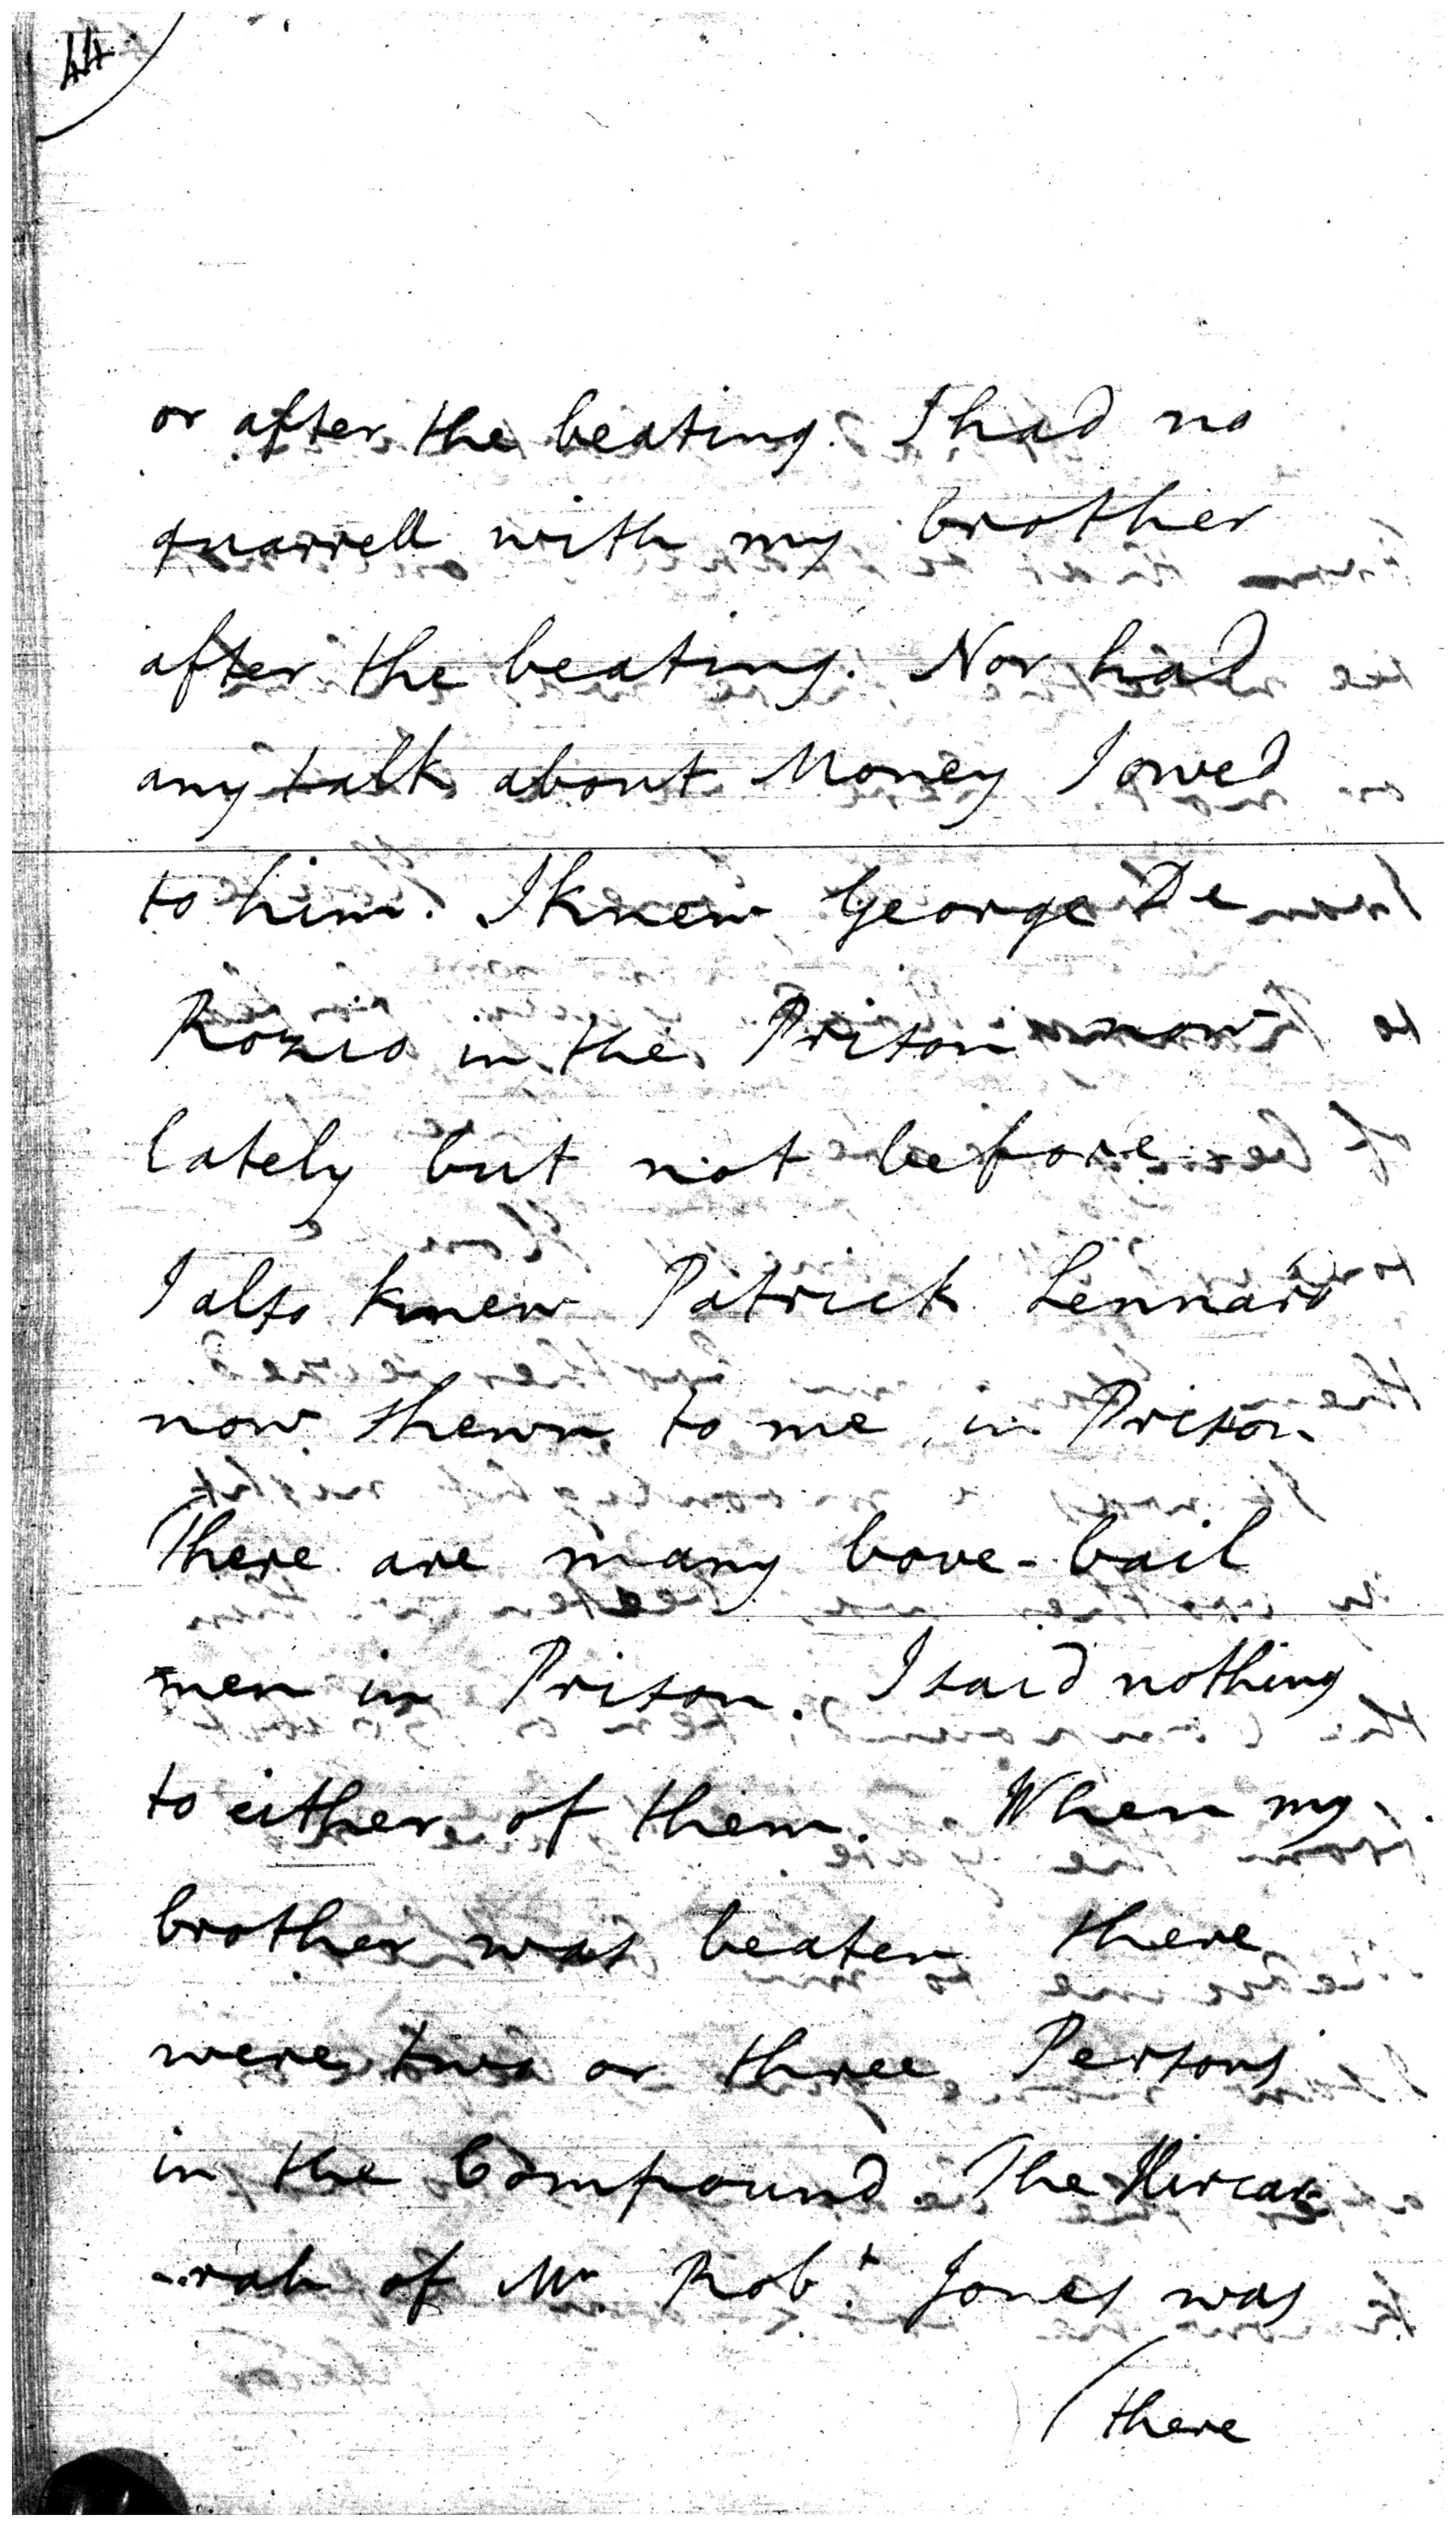 44
or after the beating. I had no
quarrell with my brother
after the beating. Nor had
any talk about Money I owed
to him. I knew George De
Rozio in the Prison now
lately but not before
I also knew Patrick Lennard
now shewn to me in Prison
There are many bove-bail
men in Prison. I said nothing
to either of them. When my
brother was beaten there
were two or three Persons
in the Compound. The Hircar
-rah of Mr Robt Jones was
there